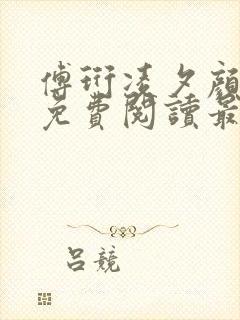 傅珩凌夕顏
免費閱讀最
呂競